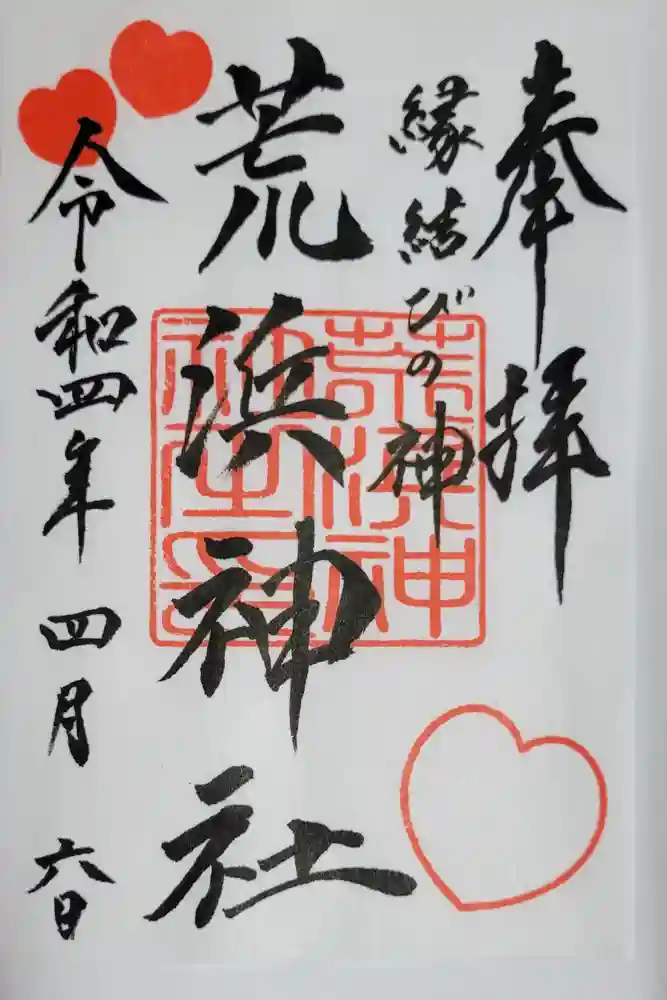 奉拝
縁結びの神
荒浜神社
令和四年四月六日